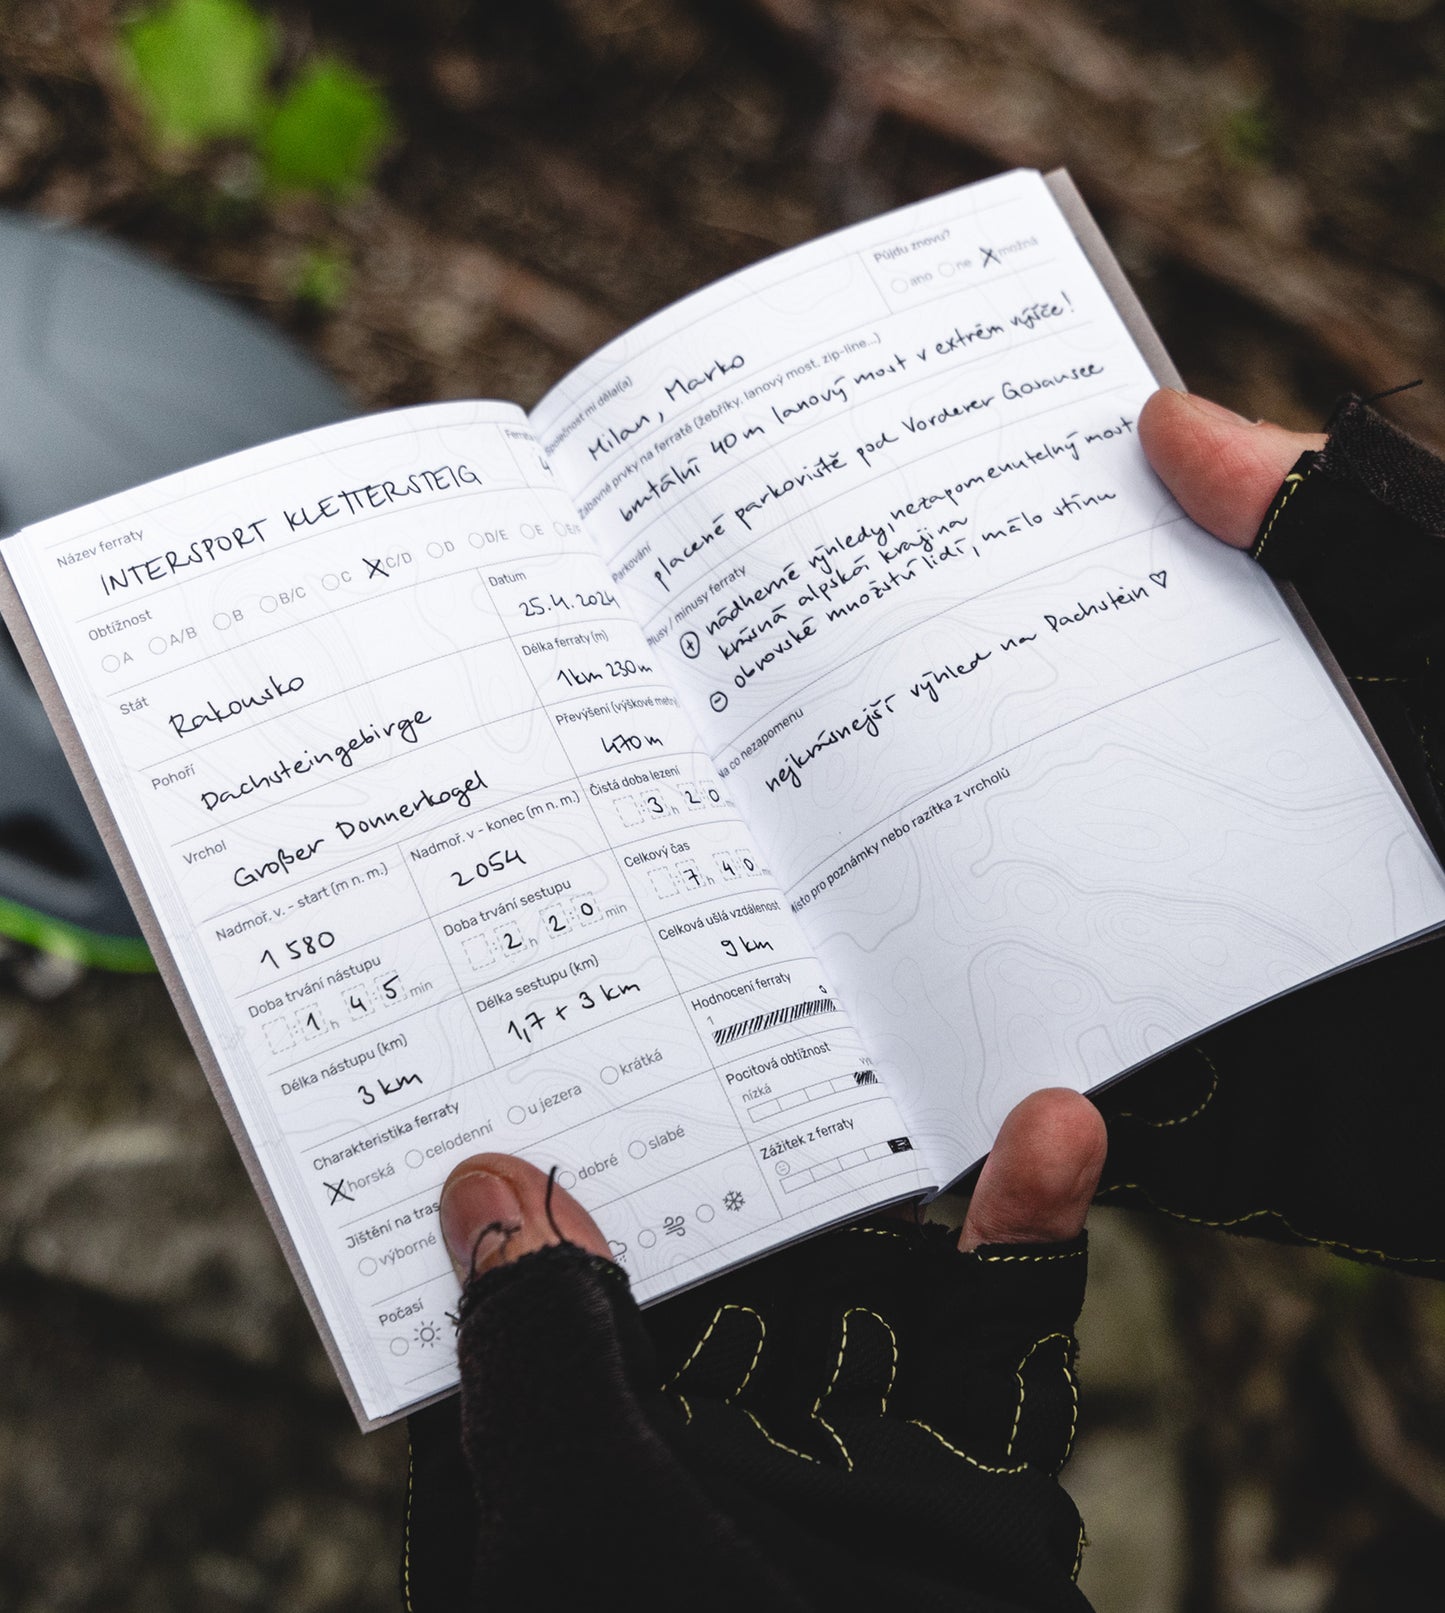 Název ferraty
INTERSPORT KLETTERSTEIG
4
Obtížnost
A A/B B B/C C X C/D D D/E E
Stát
Rakousko
Datum
25.4.2024
Pohoří
Dachsteingebirge
Délka ferraty (m)
1km 230m
Vrchol
Großer Donnerkogel
Převýšení (výškové metry
470 m
Nadmoř. v. - start (m n. m.)
1 580
Nadmoř. v - konec (m n. m.)
2054
Čistá doba lezení
3 h 20 m
Doba trvání nástupu
1 h 45 min
Doba trvání sestupu
2 h 20 min
Celkový čas
7 h 40 m
Délka nástupu (km)
3 km
Délka sestupu (km)
1,7 + 3 km
Celková ušlá vzdálenost
9 km
Charakteristika ferraty
X horská celodenní u jezera krátká
Hodnocení ferraty
1
Jištění na tras
výborné dobré slabé
Pocitová obtížnost
nízká
Počasí
Zážitek z ferraty
Půjdu znovu?
ano ne X možná
Společnost mi dělal(a)
Milan, Marko
Zábavné prvky na ferratě (žebříky, lanový most, zip-line...)
brutální 40 m lanový most v extrém výšce!
Parkování
placené parkoviště pod Vorderer Gosausee
plusy / mínusy ferraty
+ nádherné výhledy, nezapomenutelný most
krásná alpská krajina
- obrovské množství lidí, málo stínu
Na co nezapomenu
nejkrásnejší výhled na Dachstein ♡
Místo pro poznámky nebo razítka z vrcholů